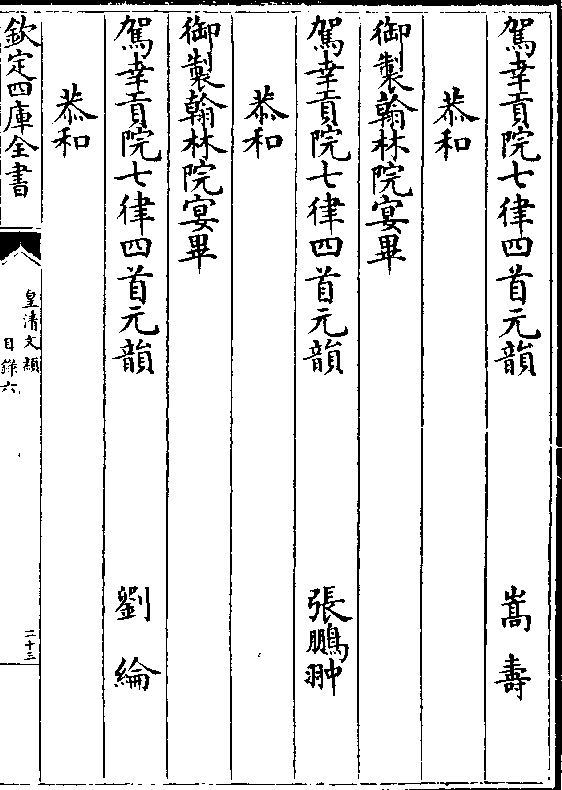 駕幸貢院七律四首元韻 嵩壽
恭和
御製翰林院宴畢
駕幸貢院七律四首元韻 張鵬翀
恭和
御製翰林院宴畢
駕幸貢院七律四首元韻 劉綸
恭和
欽定四庫全書
皇清文穎
目錄六
二十三